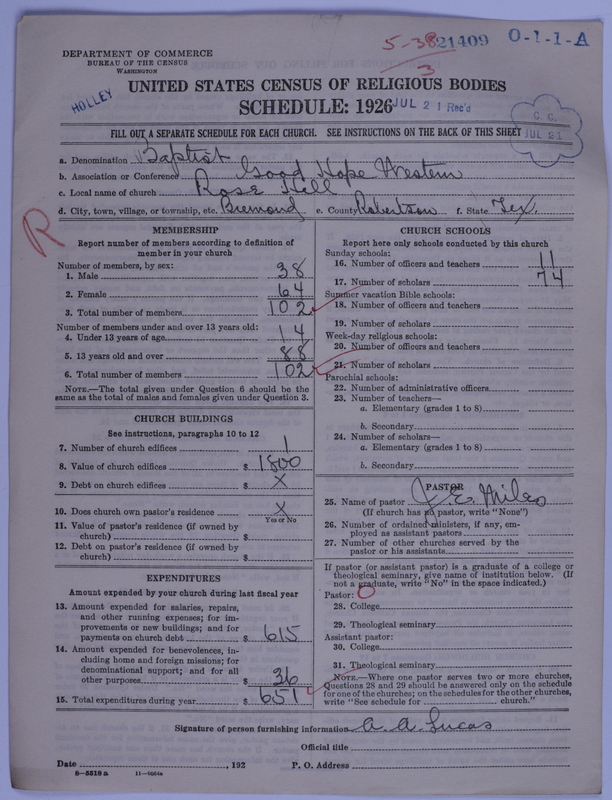 5-38 21409 O-1-1-A
3
DEPARTMENT OF COMMERCE
BUREAU OF THE CENSUS
WASHINGTON
UNITED STATES CENSUS OF RELIGIOUS BODIES
HOLLEY
SCHEDULE: 1926
JUL 21 Rec'd
C. C.
JUL 21
FILL OUT A SEPARATE SCHEDULE FOR EACH CHURCH. SEE INSTRUCTIONS ON THE BACK OF THIS SHEET
a. Denomination Baptist
b. Association or Conference Good Hope Western
c. Local name of church Rose Hill
d. City, town, village, or township, etc. Bremond e. County Robertson f. State Tex.
R
MEMBERSHIP
Report number of members according to definition of
member in your church
Number of members, by sex:
1. Male 38
2. Female 64
3. Total number of members 102
Number of members under and over 13 years old:
4. Under 13 years of age 14
5. 13 years old and over 88
6. Total number of members 102
NOTE.—The total given under Question 6 should be the
same as the total of males and females given under Question 3.
CHURCH BUILDINGS
See instructions, paragraphs 10 to 12
7. Number of church edifices 1
8. Value of church edifices $ 1800
9. Debt on church edifices $ X
10. Does church own pastor's residence X
Yes or No
11. Value of pastor's residence (if owned by
church) $
12. Debt on pastor's residence (if owned by
church) $
EXPENDITURES
Amount expended by your church during last fiscal year
13. Amount expended for salaries, repairs,
and other running expenses; for im-
provements or new buildings; and for
payments on church debt $ 615
14. Amount expended for benevolences, in-
cluding home and foreign missions; for
denominational support; and for all
other purposes $ 36
15. Total expenditures during year $ 651
CHURCH SCHOOLS
Report here only schools conducted by this church
Sunday schools:
16. Number of officers and teachers 11
17. Number of scholars 74
Summer vacation Bible schools:
18. Number of officers and teachers
19. Number of scholars
Week-day religious schools:
20. Number of officers and teachers
21. Number of scholars
Parochial schools:
22. Number of administrative officers
23. Number of teachers—
a. Elementary (grades 1 to 8)
b. Secondary
24. Number of scholars—
a. Elementary (grades 1 to 8)
b. Secondary
PASTOR
25. Name of pastor J. E. Miles
(If church has no pastor, write "None")
26. Number of ordained ministers, if any, em-
ployed as assistant pastors
27. Number of other churches served by the
pastor or his assistants
If pastor (or assistant pastor) is a graduate of a college or
theological seminary, give name of institution below. (If
not a graduate, write "No" in the space indicated.)
Pastor: O
28. College
29. Theological seminary
Assistant pastor:
30. College
31. Theological seminary
NOTE.—Where one pastor serves two or more churches,
Questions 28 and 29 should be answered only on the schedule
for one of the churches; on the schedules for the other churches,
write "See schedule for church."
Signature of person furnishing information A. A. Lucas
Official title
Date , 192 P. O. Address
8—5518 a 11—9264a